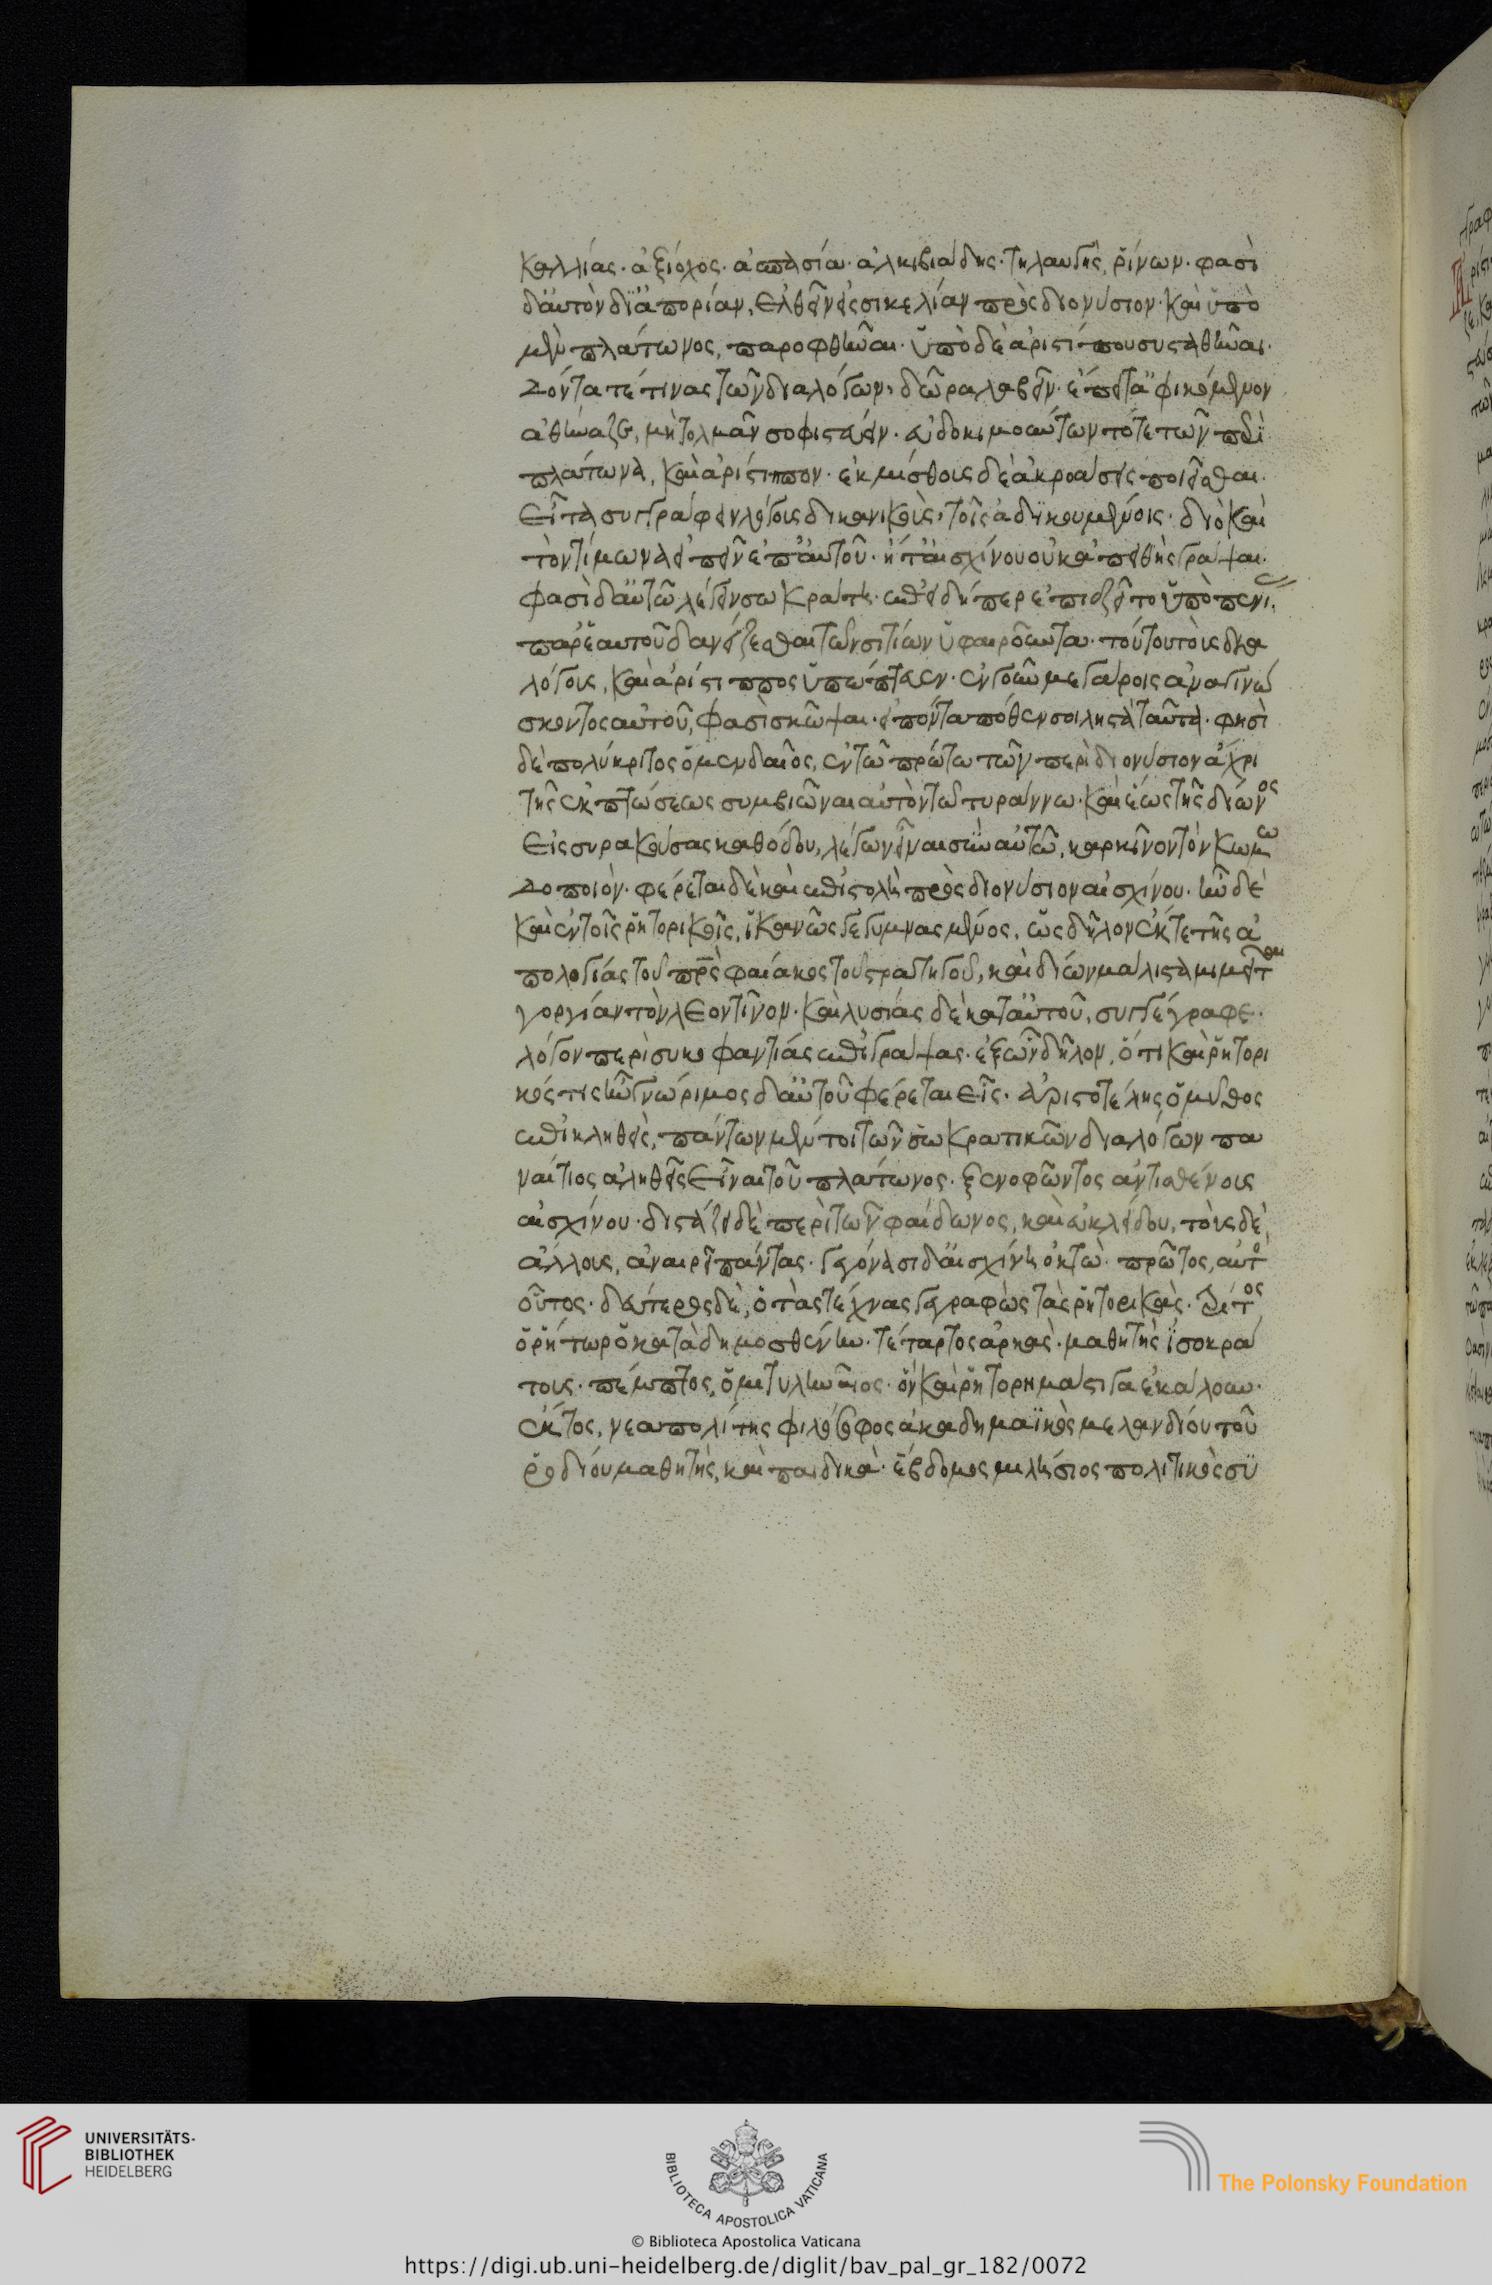 καλλίας· ἀξίοχος· ἀσπασία· ἀλκιβιάδης· τηλαυγὴς, ῥίνων· φασὶ
δ' αὐτὸν δι' ἀπορίαν, ἐλθεῖν εἰς σικελίαν πρὸς διονύσιον· καὶ ὑπὸ
μὲν πλάτωνος, παροφθῆναι· ὑπὸ δὲ ἀριστίπου συσταθῆναι·
δόντα τέ τινας τῶν διαλόγων, δῶρα λαβεῖν· ἔπειτ' ἀφικόμενον
ἀθήναζε, μὴ τολμᾶν σοφιστεύειν· εὐδοκιμούντων τότε τῶν περὶ
πλάτωνα, καὶ ἀρίστιππον· ἐκμίσθοις δὲ ἀκροάσεις ποιεῖσθαι·
εἶτα συγγράφειν λόγους δικανικοὺς, τοῖς ἀδικουμένοις· διὸ καὶ
τὸν τίμωνα εἰπεῖν ἐπ' αὐτοῦ· ἥ τ' αἰσχίνου οὐκ ἀπειθὴς γράψαι·
φασὶ δ' αὐτῶ λέγειν σωκράτη· ἐπειδήπερ ἐπιέζετο ὑπὸ πενί,
παρ' ἑαυτοῦ δανείζεσθαι τῶν σιτίων ὑφαιροῦντα· τούτου τοὺς δια
λόγους, καὶ ἀρίστιππος ὑπώπτευεν· ἐν γοῦν μεγάροις ἀναγινώ
σκοντος αὐτοῦ, φασὶ σκῶψαι· εἰπόντα πόθεν σοι ληστὰ ταῦτα· φησὶ
δὲ πολύκριτος ὁ μενδαῖος, ἐν τῶ πρώτω τῶν περὶ διονύσιον ἄχρι
τῆς ἐκπτώσεως συμβιῶναι αὐτὸν τῶ τυράννω· καὶ ἕως τῆς δίωνος
εἰς συρακούσας καθόδου, λέγων εἶναι σὺν αὐτῶ, καρκῖνον τὸν κωμω
δοποιόν· φέρεται δὲ καὶ ἐπιστολὴ πρὸς διονύσιον αἰσχίνου· ἦν δὲ
καὶ ἐν τοῖς ῥητορικοῖς, ἱκανῶς γεγυμνασμένος, ὡς δῆλον ἔκ τε τῆς ἀ
πολογίας τοῦ πρς φαίακος τοῦ στρατηγοῦ, καὶ δίων μάλιστα μιμεῖται
γοργίαν τὸν λεοντῖνον· καὶ λυσίας δὲ κατ' αὐτοῦ, συγγέγραφε·
λόγον περὶ συκοφαντίας ἐπιγράψας· ἐξ ὧν δῆλον, ὅτι καὶ ῥητορι
κός τις ἦν γνώριμος δ' αὐτοῦ φέρεται εἷς· ἀριστοτέλης ὁ μῦθος
ἐπικληθεὶς, πάντων μέν τοι τῶν σωκρατικῶν διαλόγων πα
ναίτιος ἀληθεῖς εἶναι τοῦ πλάτωνος· ξενοφῶντος ἀντισθένους
αἰσχίνου· διστάζει δὲ περὶ τῶν φαίδωνος, καὶ εὐκλείδου, τοὺς δὲ
ἄλλους, ἀναιρεῖ πάντας· γεγόνασι δ' αἰσχίναι ὀκτὼ· πρῶτος, αὐτὸ
οὗτος· δεύτερος δὲ, ὁ τὰς τέχνας γεγραφὼς τὰς ῥητορικὰς· τρίτος
ὁ ῥήτωρ ὁ κατὰ δημοσθένην· τέταρτος ἀρκὰς· μαθητὴς ἰσοκρά
τους· πέμπτος, ὁ μιτυληναῖος· ὃν καὶ ῥητορομάστιγα ἐκάλουν·
ἕκτος, νεαπολίτης φιλόσοφος ἀκαδημαϊκὸς μελανθίου τοῦ
ῥοδίου μαθητὴς, καὶ παιδικὰ· ἕβδομος μιλήσιος πολιτικὸς συ
UNIVERSITÄTS-
BIBLIOTHEK
HEIDELBERG
BIBLIOTECA APOSTOLICA VATICANA
The Polonsky Foundation
© Biblioteca Apostolica Vaticana
https://digi.ub.uni-heidelberg.de/diglit/bav_pal_gr_182/0072